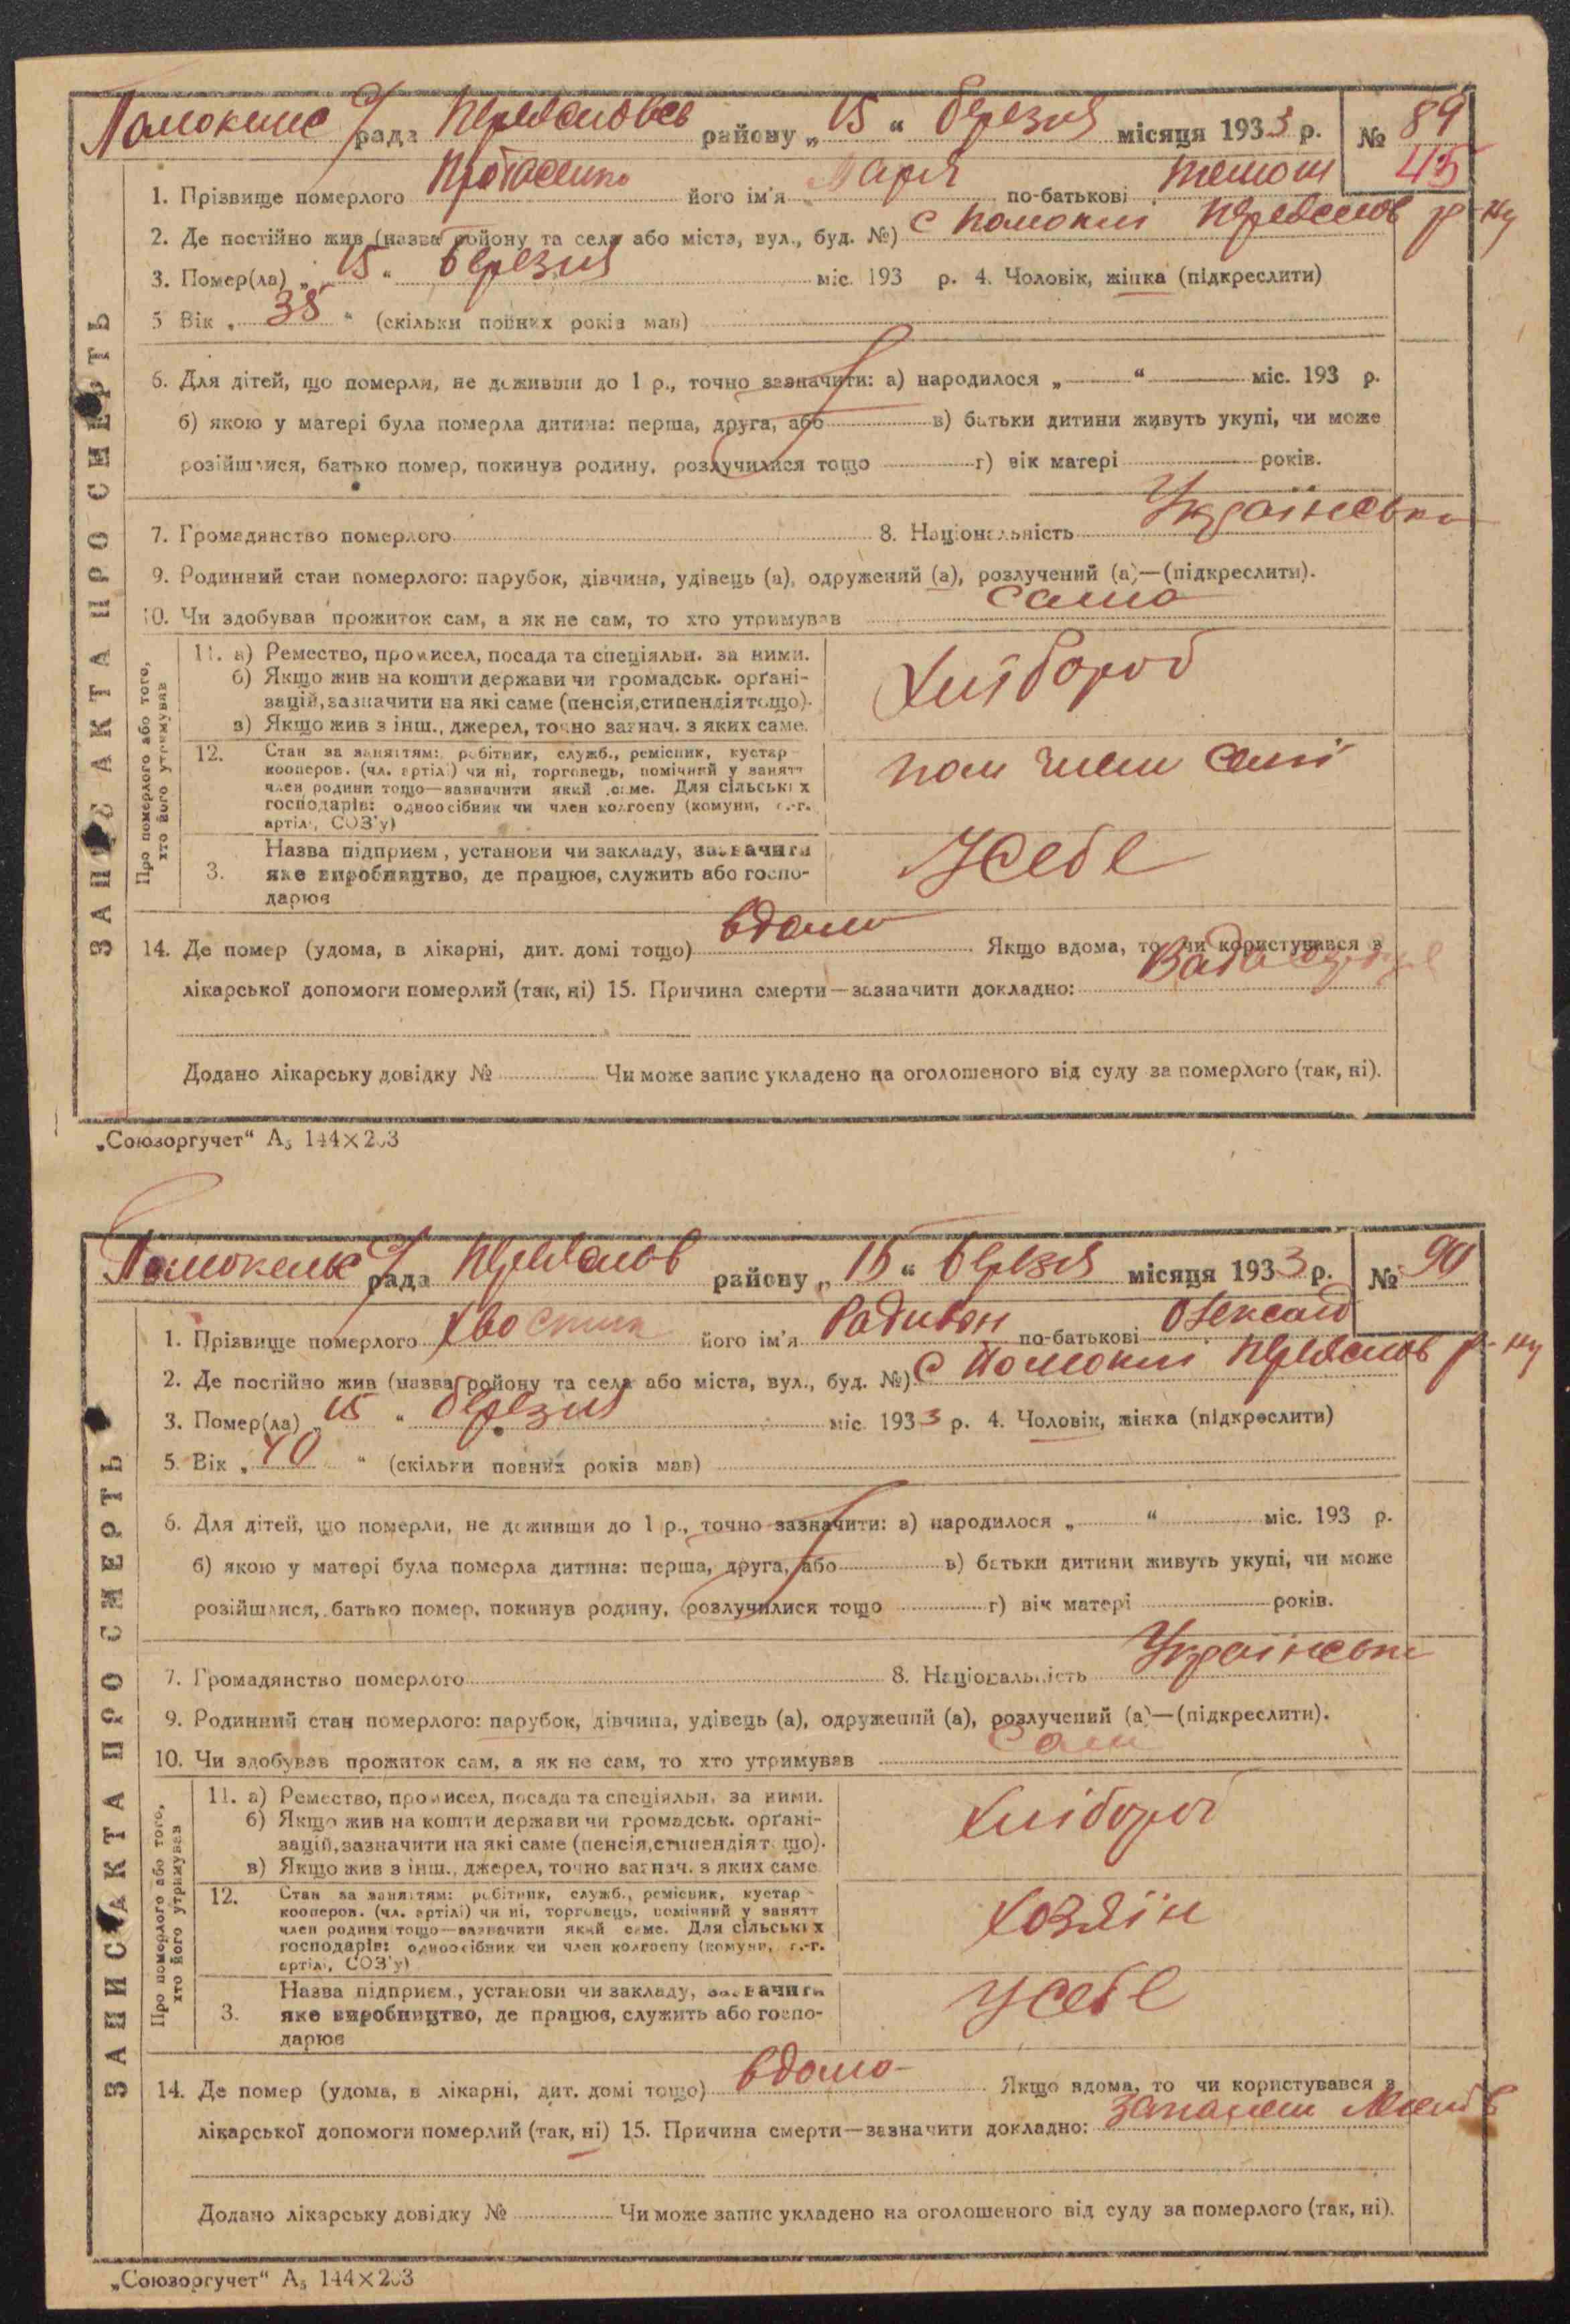 рада районy „ 15 “ березня місяця 1933 р. № 89
45
1. Прізвище померлого Протасенко його ім'я Марія по-батькові
2. Де постійно жив (назва району та села або міста, вул., буд. №) с р-ну
3. Помер(ла) „ 15 “ березня міс. 193 р. 4. Чоловік, жінка (підкреслити)
5 Вік „ 38 “ (скільки повних років мав)
6. Для дітей, що померли, не доживши до 1 р., точно зазначити: а) народилося „ “ міс. 193 р.
б) якою у матері була померла дитина: перша, друга, або в) батьки дитини живуть укупі, чи може
розійшлися, батько помер, покинув родину, розлучилися тощо г) вік матері років.
7. Громадянство померлого 8. Національність Українська
9. Родинний стан померлого: парубок, дівчина, удівець (а), одружений (а), розлучений (а)—(підкреслити).
10. Чи здобував прожиток сам, а як не сам, то хто утримував сама
ЗАПИС АКТА ПРО СМЕРТЬ
Про померлого або того, хто його утримував
11. а) Ремество, промисел, посада та спеціяльн. за ними.
б) Якщо жив на кошти держави чи громадськ. орґані-
зацій, зазначити на які саме (пенсія, стипендія тощо).
в) Якщо жив з інш., джерел, точно зазнач. з яких саме.
Хлібороб
12. Стан за заняттям: робітник, служб., ремісник, кустар
кооперов. (чл. артілі) чи ні, торговець, помічний у занятт
член родини тощо—зазначити який саме. Для сільських
господарів: одноосібник чи член колгоспу (комуни, с.-г.
артілі, СОЗ'у)
член
3. Назва підприєм., установи чи закладу, зазначити
яке виробництво, де працює, служить або госпо-
дарює
У себе
14. Де помер (удома, в лікарні, дит. домі тощо) вдома Якщо вдома, то чи користувався з
лікарської допомоги померлий (так, ні) 15. Причина смерти—зазначити докладно:
Додано лікарську довідку № Чи може запис укладено на оголошеного від суду за померлого (так, ні).
„Союзоргучет“ А₅ 144×203
рада районy „ 15 “ березня місяця 1933 р. № 90
1. Прізвище померлого Хвостик його ім'я Радивон по-батькові Олександ
2. Де постійно жив (назва району та села або міста, вул., буд. №) с р-ну
3. Помер(ла) „ 15 “ березня міс. 1933 р. 4. Чоловік, жінка (підкреслити)
5. Вік „ 40 “ (скільки повних років мав)
6. Для дітей, що померли, не доживши до 1 р., точно зазначити: а) народилося „ “ міс. 193 р.
б) якою у матері була померла дитина: перша, друга, або в) батьки дитини живуть укупі, чи може
розійшлися, батько помер, покинув родину, розлучилися тощо г) вік матері років.
7. Громадянство померлого 8. Національність Українська
9. Родинний стан померлого: парубок, дівчина, удівець (а), одружений (а), розлучений (а)—(підкреслити).
10. Чи здобував прожиток сам, а як не сам, то хто утримував Сам
ЗАПИС АКТА ПРО СМЕРТЬ
Про померлого або того, хто його утримував
11. а) Ремество, промисел, посада та спеціяльн. за ними.
б) Якщо жив на кошти держави чи громадськ. орґані-
зацій, зазначити на які саме (пенсія, стипендія тощо).
в) Якщо жив з інш., джерел, точно зазнач. з яких саме
Хлібороб
12. Стан за заняттям: робітник, служб., ремісник, кустар
кооперов. (чл. артілі) чи ні, торговець, помічний у занятт
член родини тощо—зазначити який саме. Для сільських
господарів: одноосібник чи член колгоспу (комуни, с.-г.
артілі, СОЗ'у)
хозяїн
3. Назва підприєм., установи чи закладу, зазначити
яке виробництво, де працює, служить або госпо-
дарює
У себе
14. Де помер (удома, в лікарні, дит. домі тощо) вдома Якщо вдома, то чи користувався з
лікарської допомоги померлий (так, ні) 15. Причина смерти—зазначити докладно:
Додано лікарську довідку № Чи може запис укладено на оголошеного від суду за померлого (так, ні).
„Союзоргучет“ А₅ 144×203